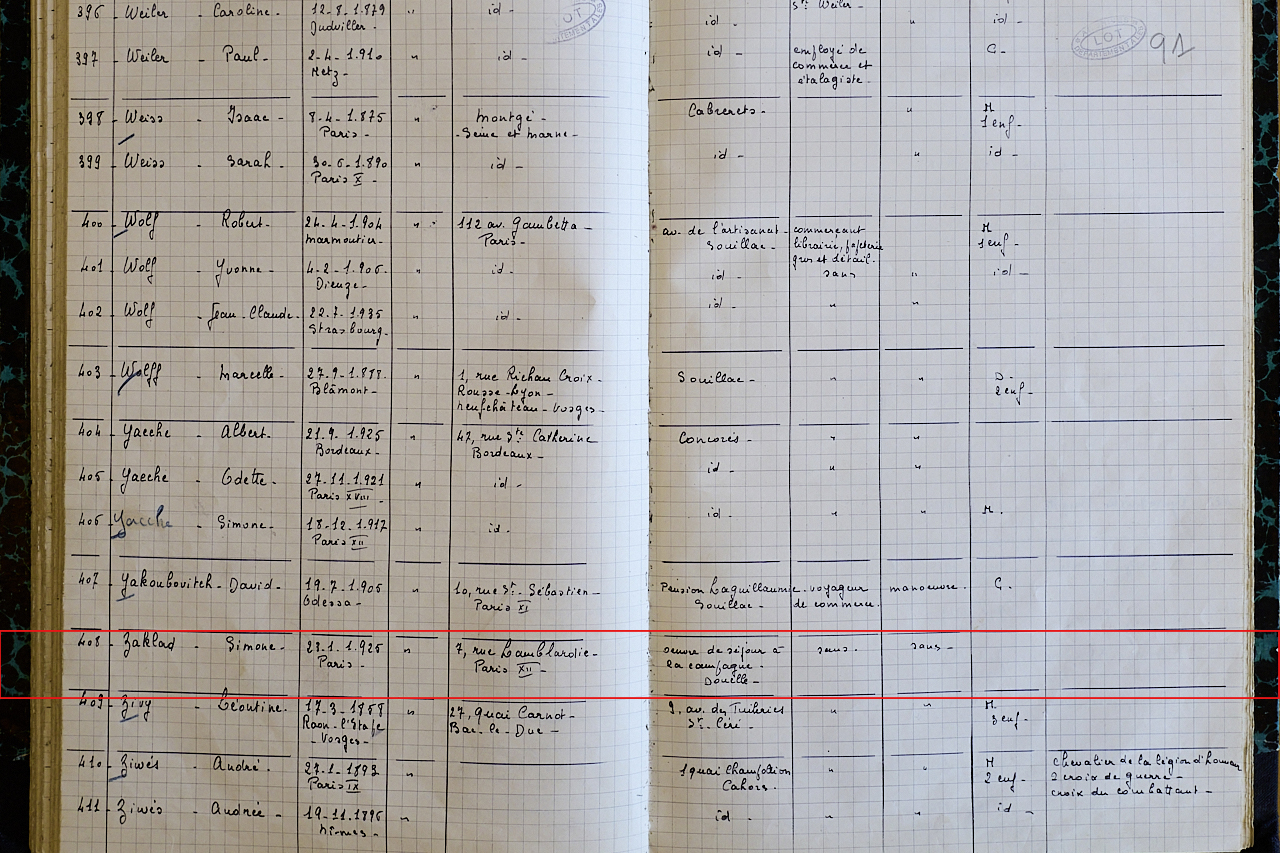 396 Weiler - Caroline. 12-8-1.879 " id - id - Ste Weiler. " id -
Judviller.
397 Weiler - Paul - 2-4-1.910 " id - id - employé de C.
Metz - commerce et
étalagiste.
91
398 Weiss - Isaac - 8-4-1.875 " Montgé - Cabrerets - " M
Paris - Seine et Marne - 1 enf -
399 Weiss - Sarah - 30-6-1.890 " id - id - " id -
Paris X -
400 Wolf - Robert - 24-4-1.904 " 112 av. Gambetta - av. de l'artisanat - commerçant M
Marmoutier - Paris - Souillac - librairie, papeterie 1 enf -
gros et détail.
401 Wolf - Yvonne - 4-2-1.906 - " id - id - sans " id -
Dieuze -
402 Wolf - Jean-Claude - 22-7-1.935 " id - id - " "
Strasbourg -
403 Wolff - Marcelle - 27-9-1.888 - " 1, rue Richan Croix - Souillac - " " D -
Blâmont - Rousse - Lyon - 2 enf -
Neufchâteau - Vosges -
404 Yaeche - Albert - 21-9-1.925 " 47, rue Ste Catherine Concorès - " "
Bordeaux - Bordeaux -
405 Yaeche - Odette - 27-11-1.921 " id - id - " "
Paris XVIII -
406 Yaeche - Simone - 18-12-1.917 " id - id - " " M.
Paris XII
407 Yakoubovitch - David - 19-7-1.905 " 10, rue St-Sébastien - Pension Laguillaumie - voyageur manoeuvre. C.
Odessa - Paris XI Souillac - de commerce.
408 Zaklad - Simone - 23-1-1.925 " 7, rue Lamblardie - oeuvre de séjour à sans - sans -
Paris - Paris XII - la campagne -
Douelle -
409 Zivy - Léontine. 17-3-1868 " 27, quai Carnot - 9, av. des Tuileries " " M.
Raon-l'Etape Bar-le-Duc - St-Céré - 3 enf -
- Vosges -
410 Ziwès - André. 27-1-1893 " 1 quai Champollion " " M Chevalier de la légion d'honneur
Paris IX Cahors. 2 enf - 2 croix de guerre -
croix du combattant -
411 Ziwès - Andrée - 19-11-1896 " id - " " id -
Nîmes -